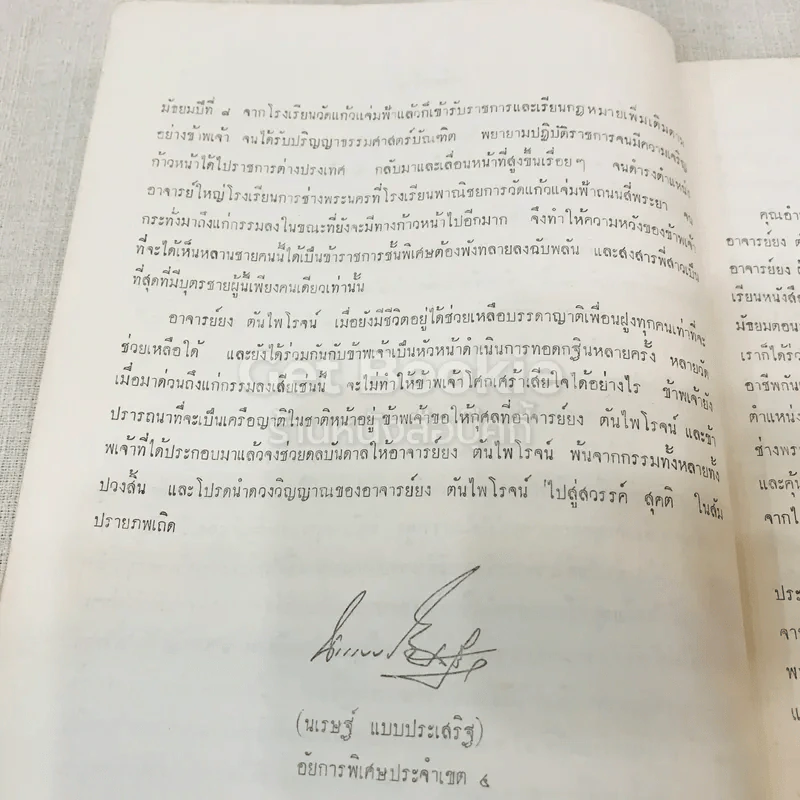 มัธยมปีที่ ๘ จากโรงเรียนวัดแก้วแจ่มฟ้าแล้วก็เข้ารับราชการและเรียนกฎหมายเพิ่มเติมตาม
อย่างข้าพเจ้า จนได้รับปริญญาธรรมศาสตร์บัณฑิต พยายามปฏิบัติราชการจนมีความเจริญ
ก้าวหน้าได้ไปราชการต่างประเทศ กลับมาและเลื่อนหน้าที่สูงขึ้นเรื่อยๆ จนดำรงตำแหน่ง
อาจารย์ใหญ่โรงเรียนการช่างพระนครที่โรงเรียนพาณิชยการวัดแก้วแจ่มฟ้าถนนสี่พระยา จน
กระทั่งมาถึงแก่กรรมลงในขณะที่ยังจะมีทางก้าวหน้าไปอีกมาก จึงทำให้ความหวังของข้าพเจ้า
ที่จะได้เห็นหลานชายคนนี้ได้เป็นข้าราชการชั้นพิเศษต้องพังทลายลงฉับพลัน และสงสารพี่สาวเป็น
ที่สุดที่มีบุตรชายผู้นี้เพียงคนเดียวเท่านั้น
อาจารย์ยง ตันไพโรจน์ เมื่อยังมีชีวิตอยู่ได้ช่วยเหลือบรรดาญาติเพื่อนฝูงทุกคนเท่าที่จะ
ช่วยเหลือได้ และยังได้ร่วมกันกับข้าพเจ้าเป็นหัวหน้าดำเนินการทอดกฐินหลายครั้ง หลายวัด
เมื่อมาด่วนถึงแก่กรรมลงเสียเช่นนี้ จะไม่ทำให้ข้าพเจ้าโศกเศร้าเสียใจได้อย่างไร ข้าพเจ้ายัง
ปรารถนาที่จะเป็นเครือญาติในชาติหน้าอยู่ ข้าพเจ้าขอให้กุศลที่อาจารย์ยง ตันไพโรจน์ และข้า
พเจ้าที่ได้ประกอบมาแล้วจงช่วยดลบันดาลให้อาจารย์ยง ตันไพโรจน์ พ้นจากกรรมทั้งหลายทั้ง
ปวงสิ้น และโปรดนำดวงวิญญาณของอาจารย์ยง ตันไพโรจน์ ไปสู่สวรรค์ สุคติ ในสัม
ปรายภพเถิด
(นเรษฐ์ แบบประเสริฐ)
อัยการพิเศษประจำเขต ๔
คุณอำ
อาจารย์ยง ตั
อาจารย์ยง
เรียนหนังสือ
มัธยมตอน
เราก็ได้ร่ว
อาชีพกัน
ตำแหน่ง
ช่างพระ
และคุ้น
จากไ
ประ
จาร
พ
แ
Get Books
ร้านหนังสือมือนี้